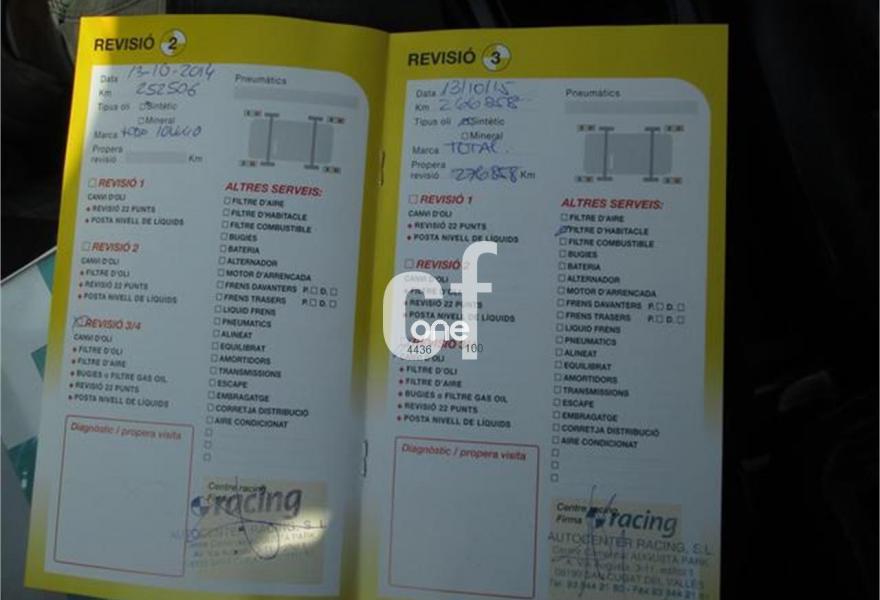 REVISIÓ 2
Data 13-10-2014
Km 252506
Pneumàtics
Tipus oli Sintètic
Mineral
Marca
Propera
revisió Km
REVISIÓ 1
CANVI D'OLI
REVISIÓ 22 PUNTS
POSTA NIVELL DE LÍQUIDS
REVISIÓ 2
CANVI D'OLI
FILTRE D'OLI
REVISIÓ 22 PUNTS
POSTA NIVELL DE LÍQUIDS
REVISIÓ 3/4
CANVI D'OLI
FILTRE D'OLI
FILTRE D'AIRE
BUGIES o FILTRE GAS OIL
REVISIÓ 22 PUNTS
POSTA NIVELL DE LÍQUIDS
Diagnòstic / propera visita
ALTRES SERVEIS:
FILTRE D'AIRE
FILTRE D'HABITACLE
FILTRE COMBUSTIBLE
BUGIES
BATERIA
ALTERNADOR
MOTOR D'ARRENCADA
FRENS DAVANTERS P. D.
FRENS TRASERS P. D.
LIQUID FRENS
PNEUMATICS
ALINEAT
EQUILIBRAT
AMORTIDORS
TRANSMISSIONS
ESCAPE
EMBRAGATGE
CORRETJA DISTRIBUCIÓ
AIRE CONDICIONAT
Centre racing
Firma
racing
AUTOCENTER RACING, S.L.
REVISIÓ 3
Data 13/10/15
Km 266858
Pneumàtics
Tipus oli Sintètic
Mineral
Marca TOTAL.
Propera
revisió 276858 Km
REVISIÓ 1
CANVI D'OLI
REVISIÓ 22 PUNTS
POSTA NIVELL DE LÍQUIDS
REVISIÓ 2
CANVI D'OLI
FILTRE D'OLI
REVISIÓ 22 PUNTS
POSTA NIVELL DE LÍQUIDS
REVISIÓ
D'OLI
FILTRE D'OLI
FILTRE D'AIRE
BUGIES o FILTRE GAS OIL
REVISIÓ 22 PUNTS
POSTA NIVELL DE LÍQUIDS
Diagnòstic / propera visita
ALTRES SERVEIS:
FILTRE D'AIRE
FILTRE D'HABITACLE
FILTRE COMBUSTIBLE
BUGIES
BATERIA
ALTERNADOR
MOTOR D'ARRENCADA
FRENS DAVANTERS P. D.
FRENS TRASERS P. D.
LIQUID FRENS
PNEUMATICS
ALINEAT
EQUILIBRAT
AMORTIDORS
TRANSMISSIONS
ESCAPE
EMBRAGATGE
CORRETJA DISTRIBUCIÓ
AIRE CONDICIONAT
Centre racing
Firma
racing
AUTOCENTER RACING, S.L.
Centre Comercial AUGUSTA PARK
SANT CUGAT DEL VALLES
cf
one
4436 100